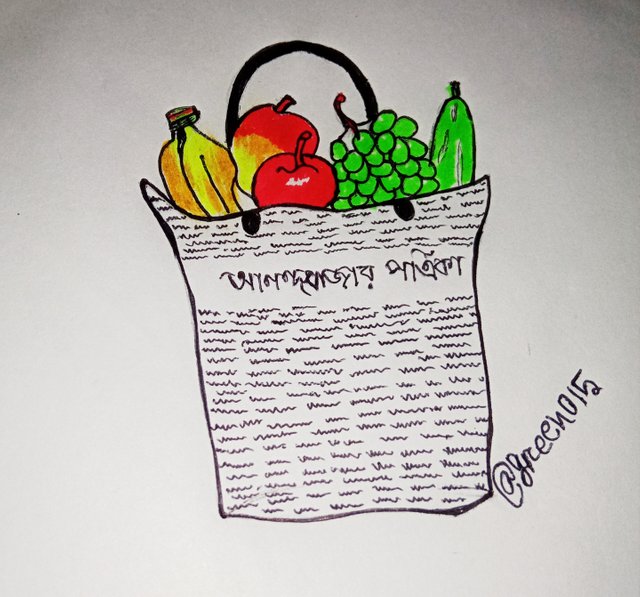 আনন্দবাজার পত্রিকা
@green015